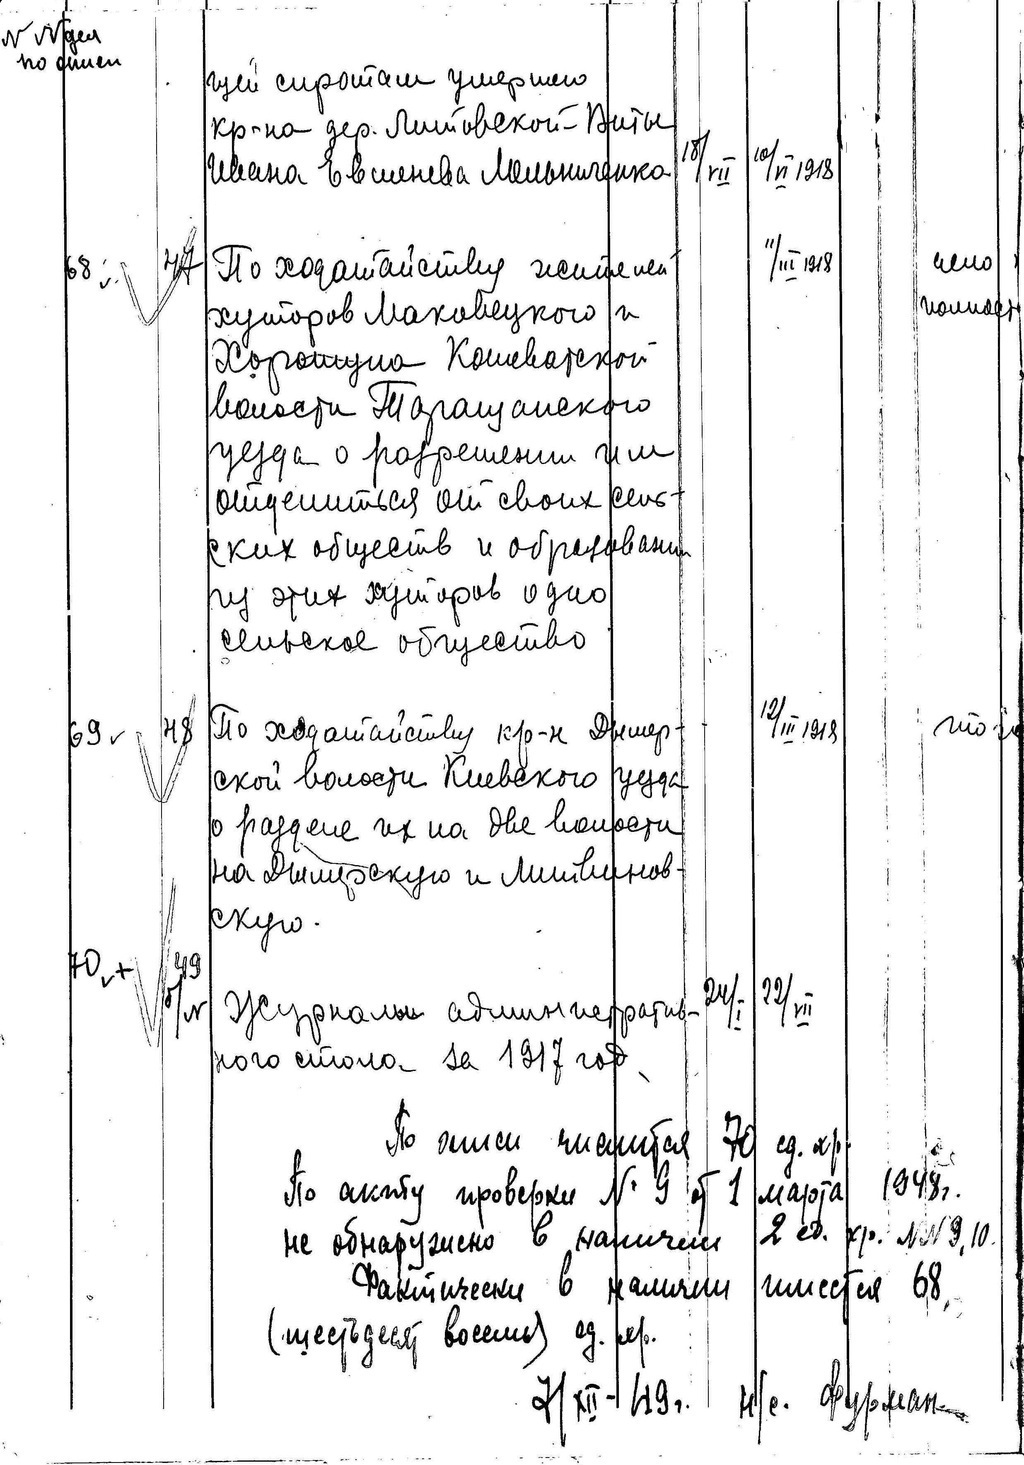 N N дел
по описи
щей сиротам умершего
кр-на дер. Литовской-Виты
Ивана Евсиенева Мельниченка 18/VII 10/VI 1918
68 47 По ходатайству жителей 11/III 1918
хуторов Маковецкого и
Хорошуна Кошеватской
волости Таращанского
уезда о разрешении им
отделиться от своих сель-
ских обществ и образовании
из этих хуторов одно
сельское общество
69 48 По ходатайству кр-н Дымер- 12/III 1918
ской волости Киевского уезда
о разделе их на две волости
на Дымерскую и Литвинов-
скую.
70 + 49
б/N Журналы административ- 24/I 22/VII
ного стола за 1917 год
По описи числится 70 ед. хр.
По акту проверки № 9 от 1 марта 1948г.
не обнаружено в наличии 2 ед. хр. NN 9, 10.
Фактически в наличии имеется 68
(шестьдесят восемь) ед. хр.
2/XII-49г. н/с. Фурман